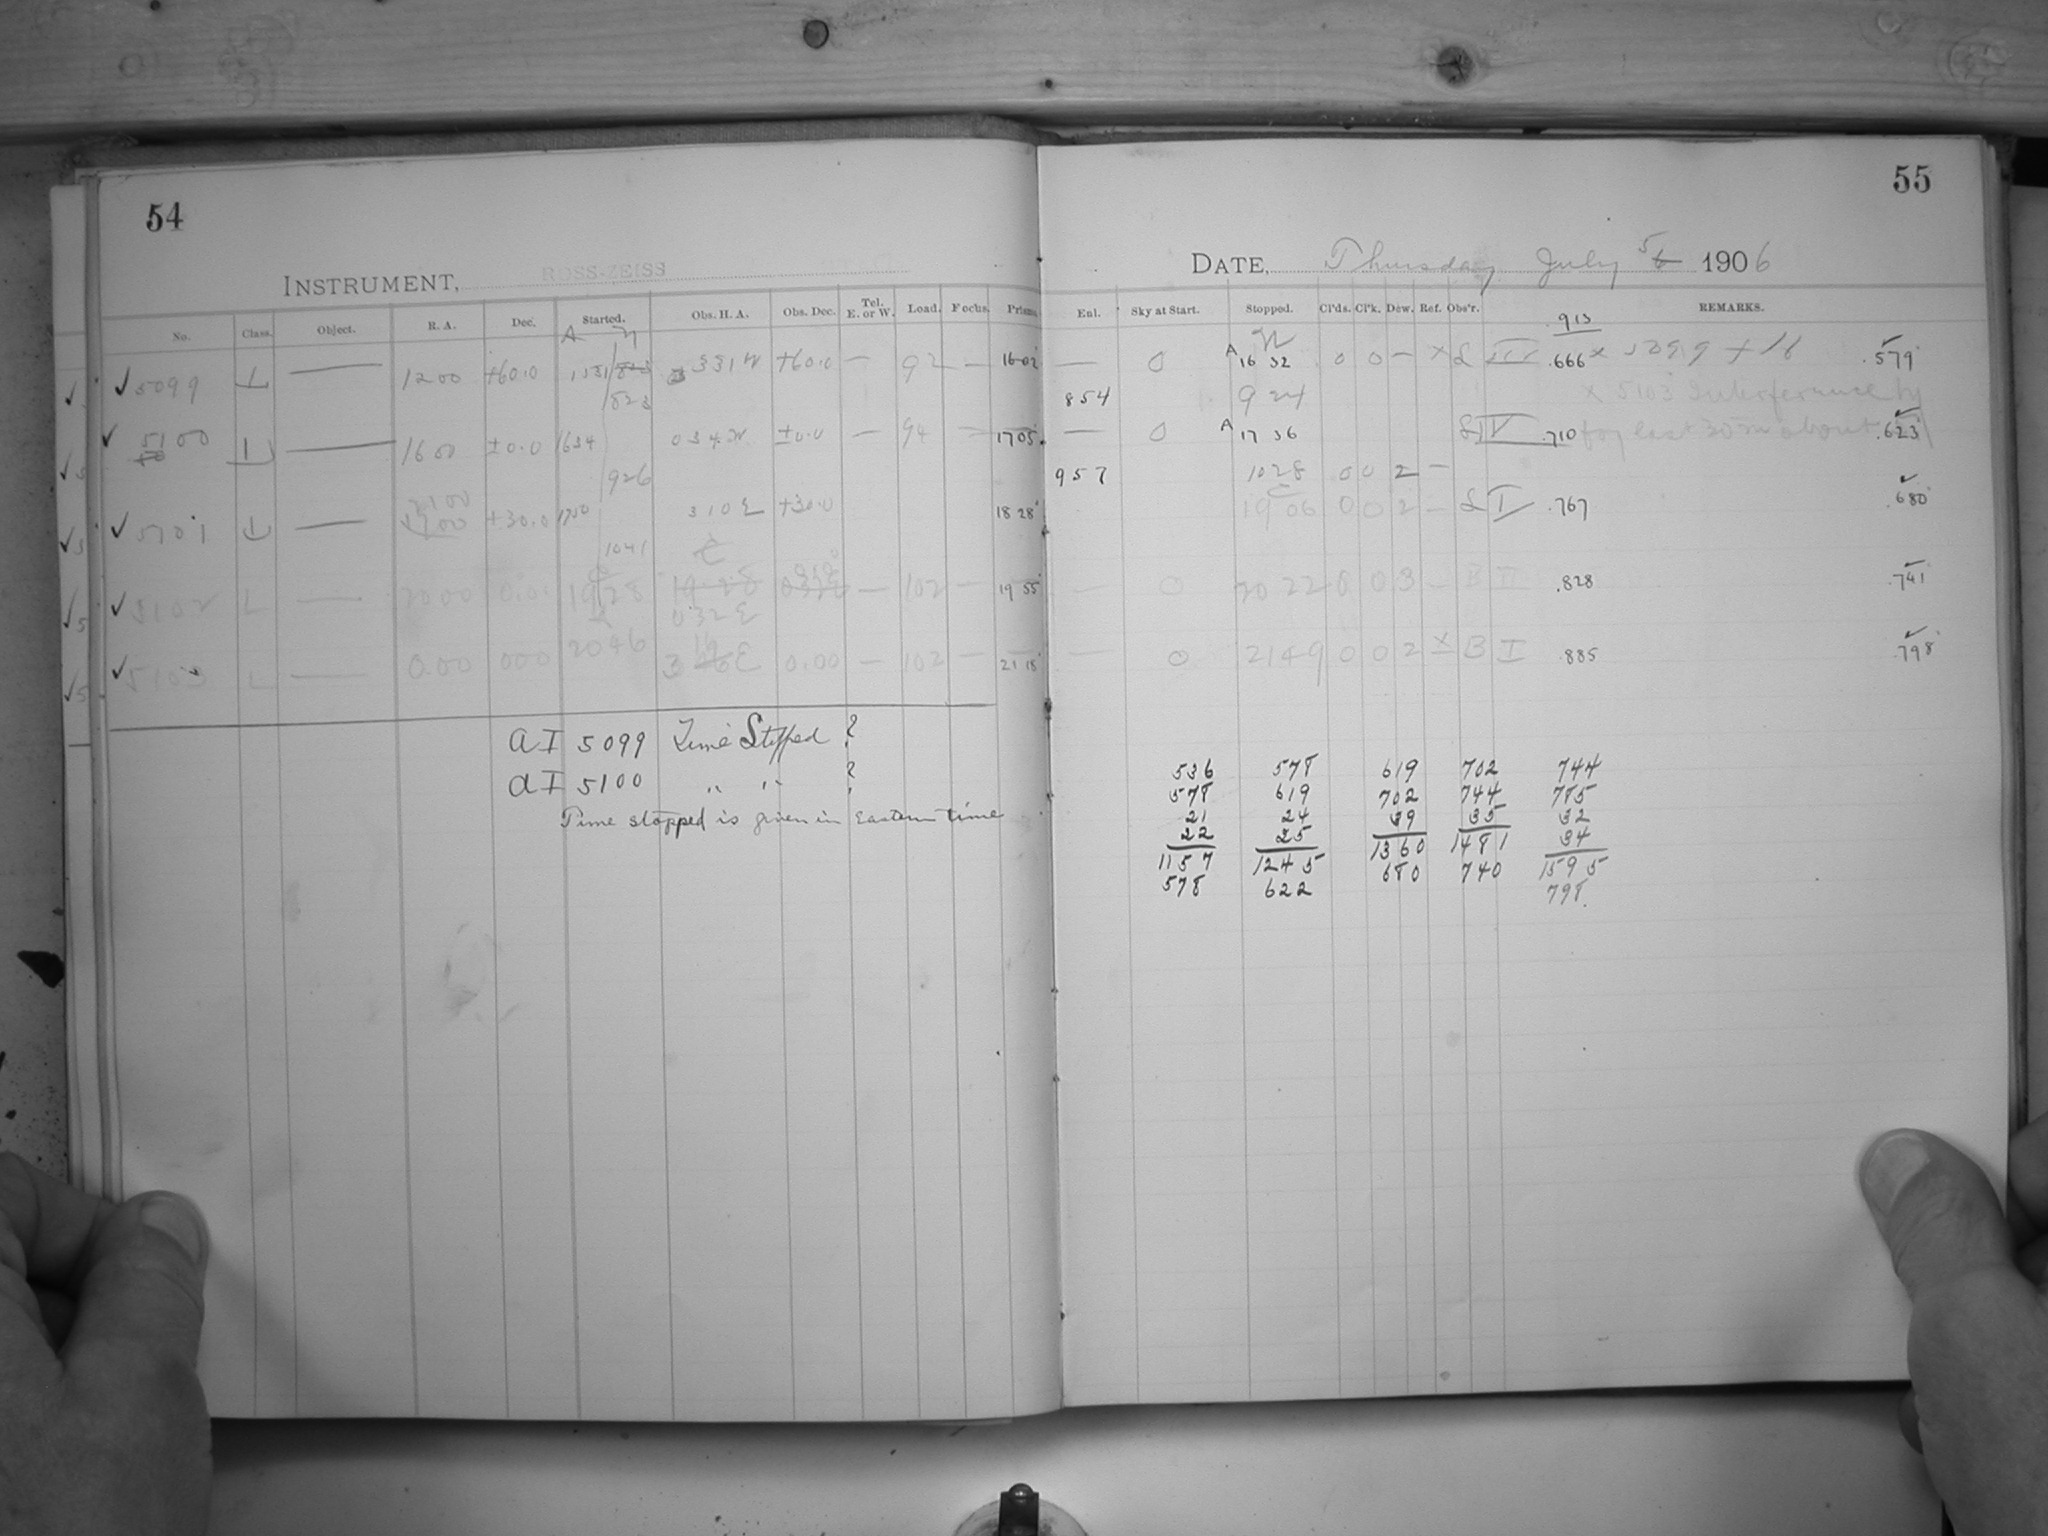 54
INSTRUMENT, ROSS-ZEISS
No. Class. Object. R. A. Dec. Started. Obs. H. A. Obs. Dec. Tel. E. or W. Load. Focus. Prisms.
A
✓ 5099 L — 1200 +60.0 1531/ 331 W +60.0 — 92 — 1602
823
✓ 5100 L — 1600 ±0.0 1634 034 W ±0.0 — 94 1705
926
2100
✓ 5101 L — +30.0 310 E +30.0 1828
1041
✓ 5102 L — 2000 0.0 1928 — 102 — 1955
032 E
✓ 5103 L — 0.00 000 2046 3 E 0.00 — 102 — 2118
a I 5099 Time Stopped ?
a I 5100 " " ?
Time stopped is given in Eastern time
55
DATE, Thursday July 5 1906
Enl. Sky at Start. Stopped. Cl'ds. Cl'k. Dew. Ref. Obs'r. REMARKS.
.913
— 0 A 16 32 0 0 — × L III .666 × 5099 + 18 .579
854 924 × 5103 Interference by
— 0 A 17 36 L IV .710 fog last 30m about .623
957 1028 0 0 2 —
1906 0 0 2 — L I .767 .680
— 0 2022 0 0 3 — B II .828 .741
— 0 2149 0 0 2 × B I .885 .798
536 578 619 702 744
578 619 702 744 785
21 24 39 35 32
22 25 1360 1481 34
1157 1245 680 740 1595
578 622 798.